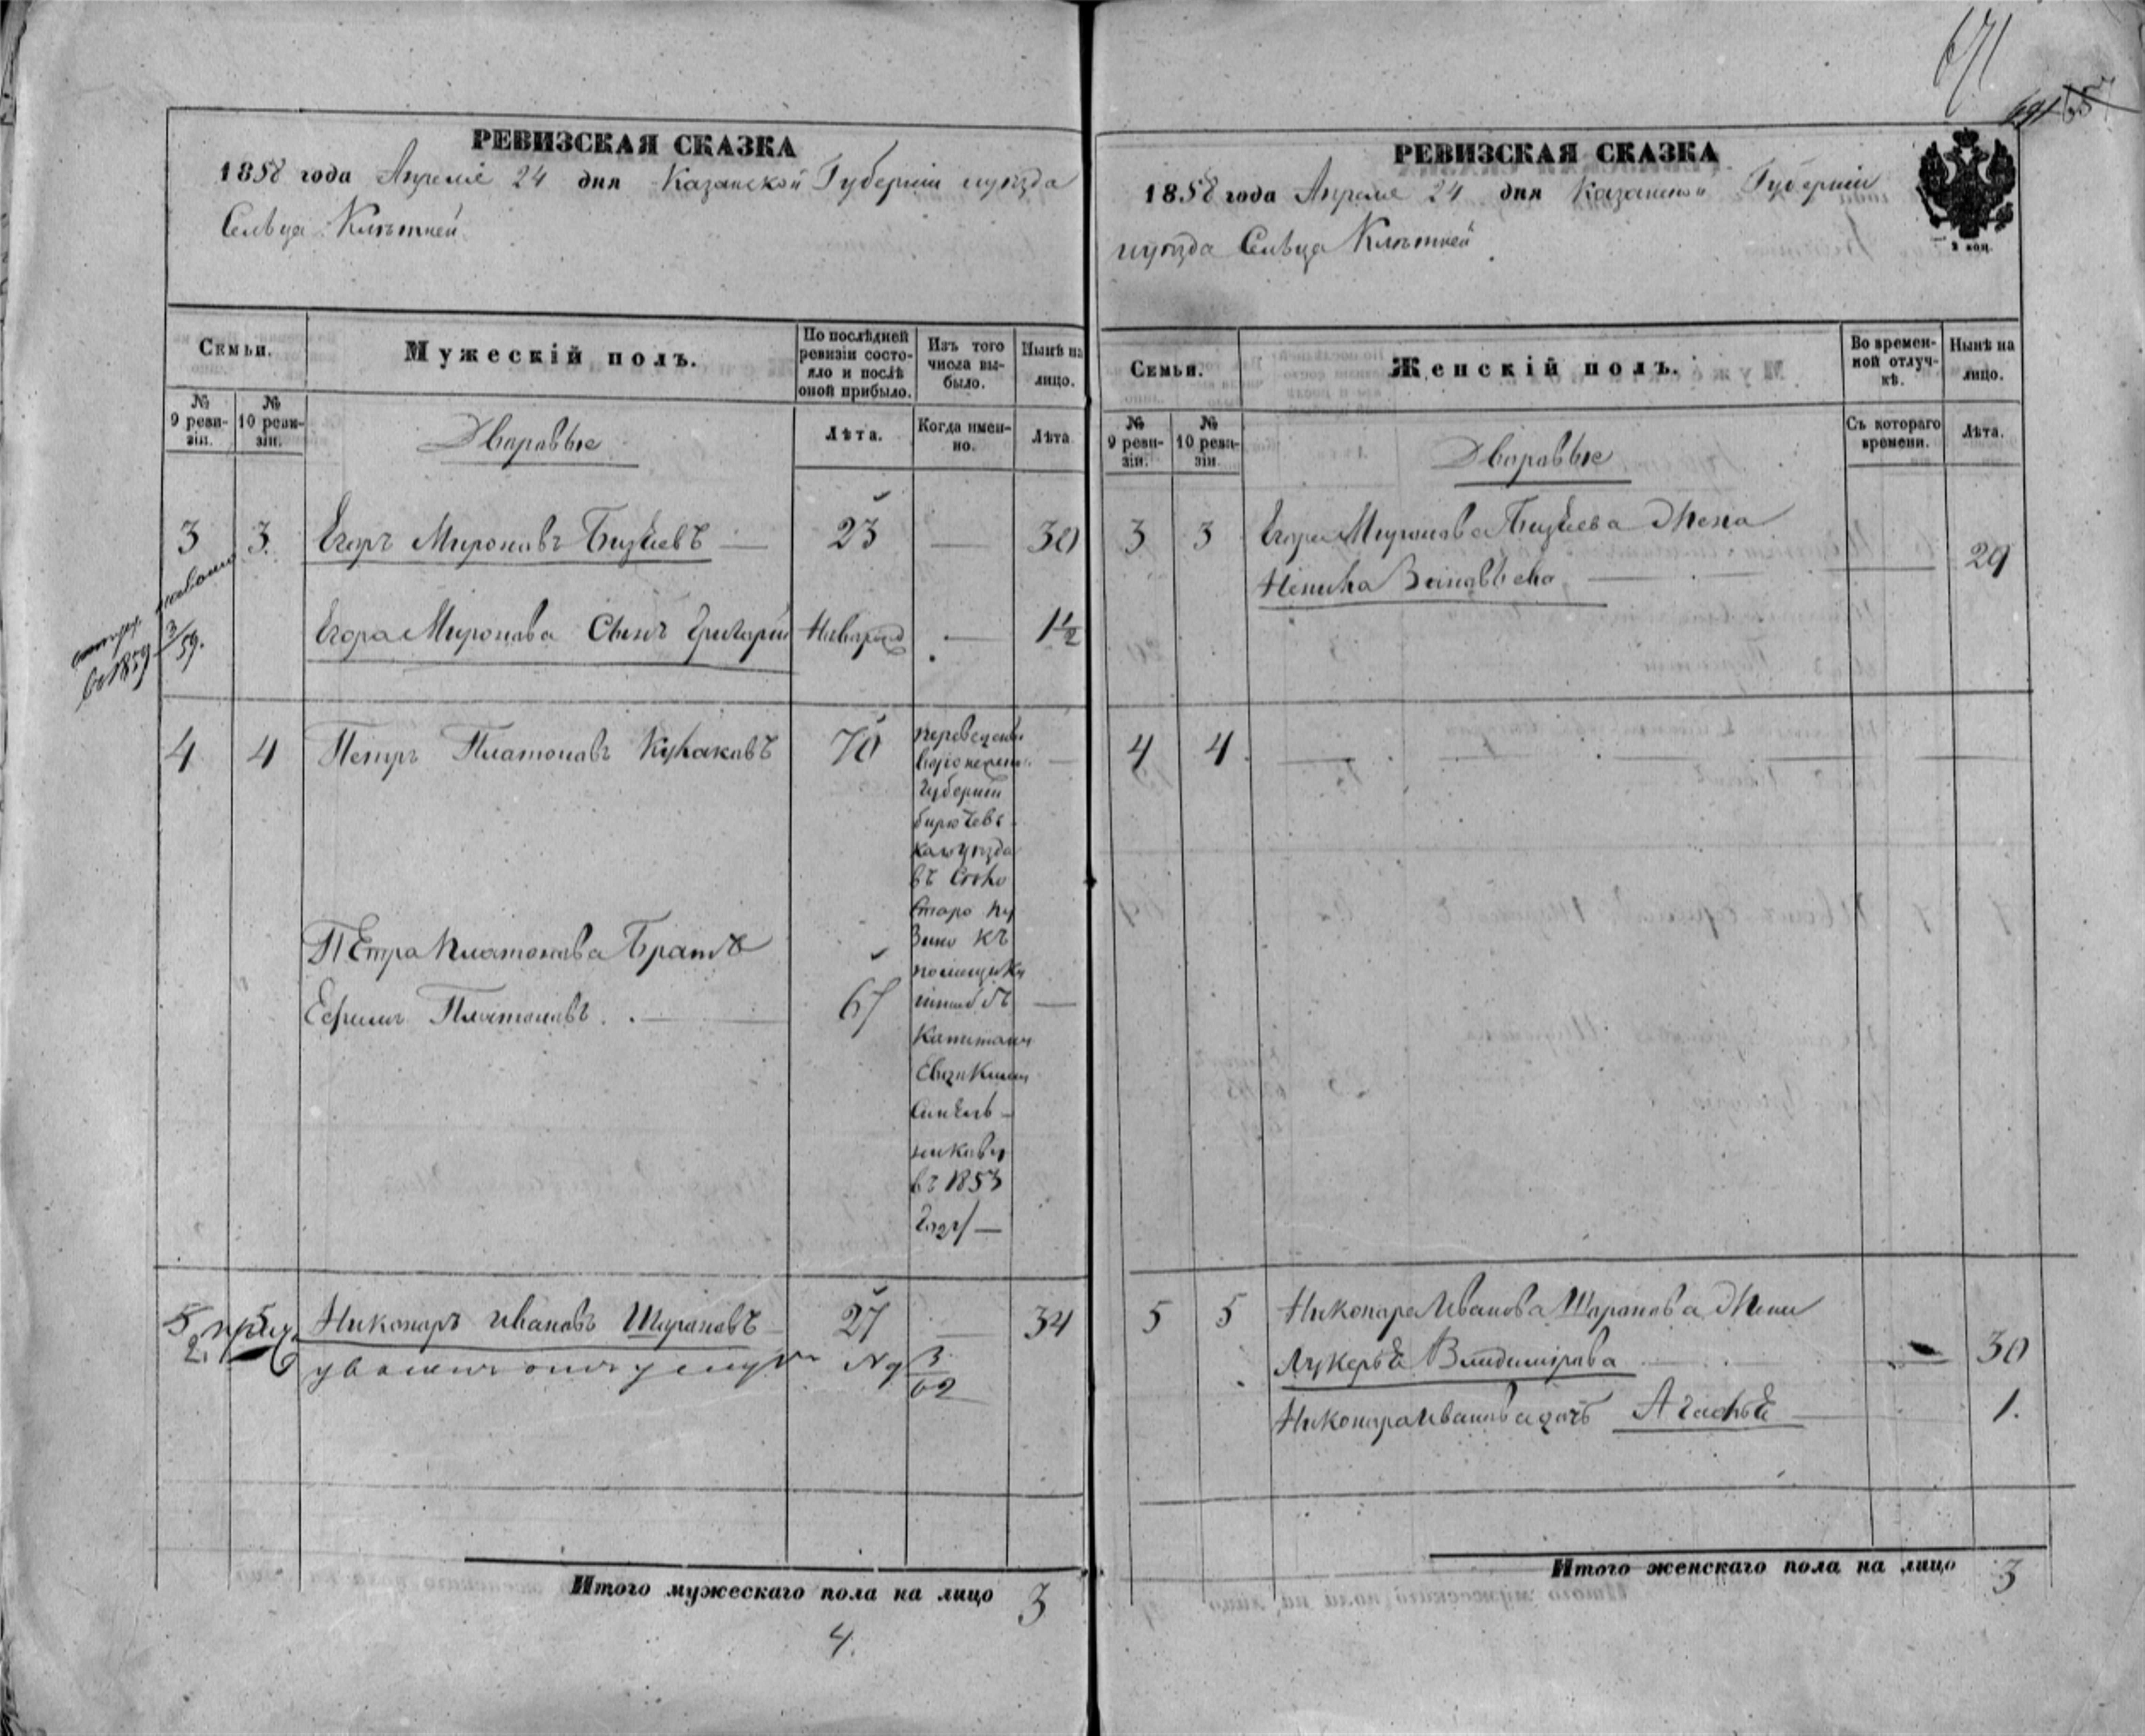 671
691 657
РЕВИЗСКАЯ СКАЗКА
1858 года Апреле 24 дня Казанской Губернии и уѣзда
Сельца Клѣтней
Семьи.
Мужескій полъ.
По послѣдней ревизіи состо-
яло и послѣ
оной прибыло.
Изъ того
числа вы-
было.
Нынѣ на
лицо.
№
9 реви-
зіи.
№
10 реви-
зіи.
Дворовые
Лѣта.
Когда имен-
но.
Лѣта
3 3. Егоръ Мироновъ 23 — 30
Егора Миронова Сынъ Григорій Новорожд — 1 1/2
в 1859 3/59.
4 4 Петръ Платоновъ Кулаковъ 70 —
переведены
воронежск.
Губернии
бирючев-
каго уѣзда
въ Село
Старо
къ
помещику
штабсъ
Капитану
Синель-
никову
въ 1853
Году —
Петра Платонова Братъ
Ефимъ Платоновъ. — 67 —
5 5 Никоноръ Ивановъ Шароновъ 27 — 34
2.
№ 9 3/62
Итого мужескаго пола на лицо 3
4.
РЕВИЗСКАЯ СКАЗКА
1858 года Апреле 24 дня Казанской Губерніи
и уѣзда Сельца Клѣтней
2 коп.
Семьи.
Женскій полъ.
Во времен-
ной отлуч-
кѣ.
Нынѣ на
лицо.
№
9 реви-
зіи.
№
10 реви-
зіи
Дворовые
Съ котораго
времени.
Лѣта.
3 3 Егора Миронова Жена
29
4 4.
5 5 Никонора Иванова Шаронова Жена
Лукерья Владимірова — 30
Никонора Иванова дочь Агафья 1.
Итого женскаго пола на лицо 3